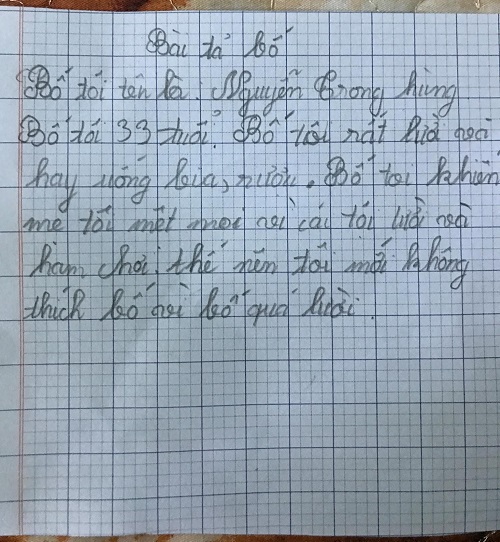 Bài tả bố
Bố tôi tên là: Nguyễn trong hùng
Bố tôi 33 tuổi. Bố tôi rất lười
hay uống bia, rượu. Bố tôi khiến
mẹ tôi mệt mọi vì cái tôi lười và
ham chơi, thế nên tôi mới không
thích bố vì bố quá lười.